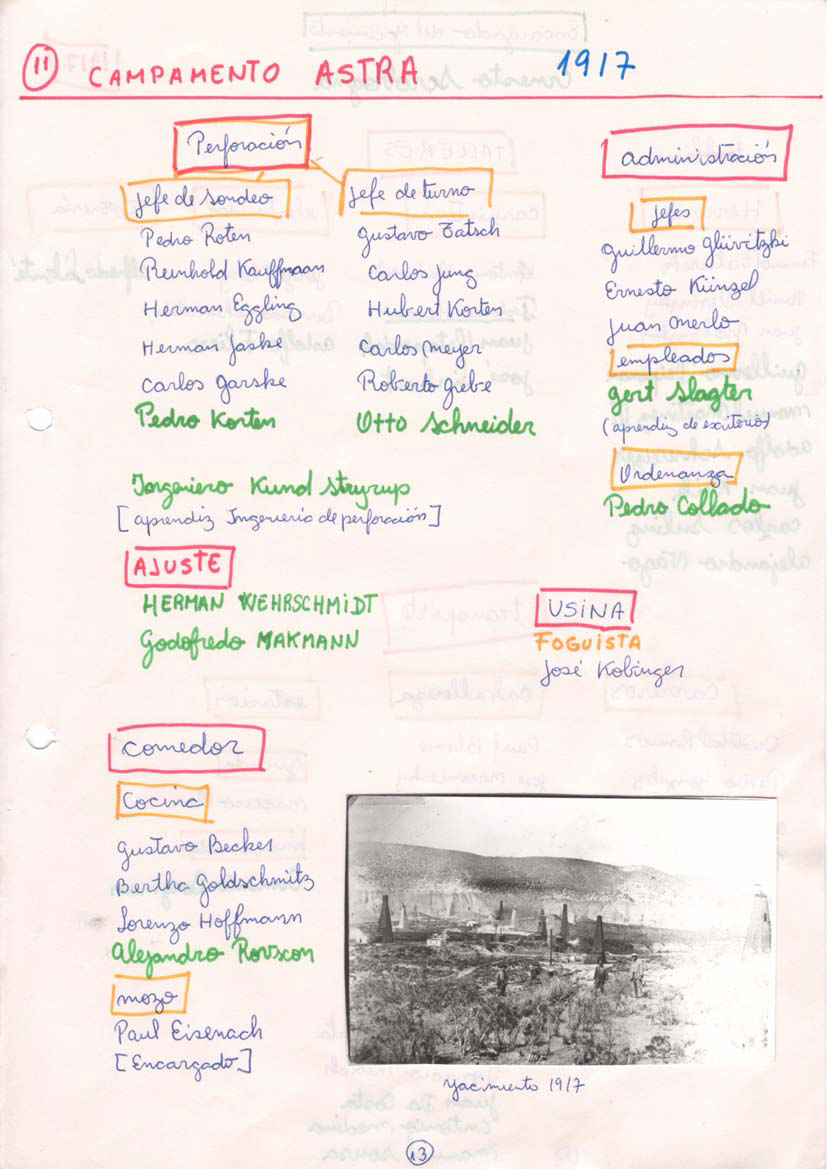 11 CAMPAMENTO ASTRA 1917
Perforación
Jefe de sondeo
Pedro Roten
Reinhold Kauffmann
Herman Eggling
Herman Jaske
Carlos Garske
Pedro Korten
Jefe de turno
Gustavo Tatsch
Carlos Jung
Hubert Korten
Carlos Meyer
Roberto Grebe
Otto Schneider
Ingeniero Kund Stryrup
[aprendiz Ingenieria de perforación]
administración
jefes
Guillermo Glüvitzki
Ernesto Künzel
Juan Merlo
empleados
Gert Slagter
(aprendiz de escritorio)
Ordenanza
Pedro Collado
AJUSTE
HERMAN WEHRSCHMiDT
Godofredo MAKMANN
USINA
FOGUISTA
José Kobinger
Comedor
Cocina
Gustavo Becker
Bertha Goldschmitz
Lorenzo Hoffmann
Alejandro Rovscon
mozo
Paul Eisenach
[Encargado]
Yacimiento 1917
13